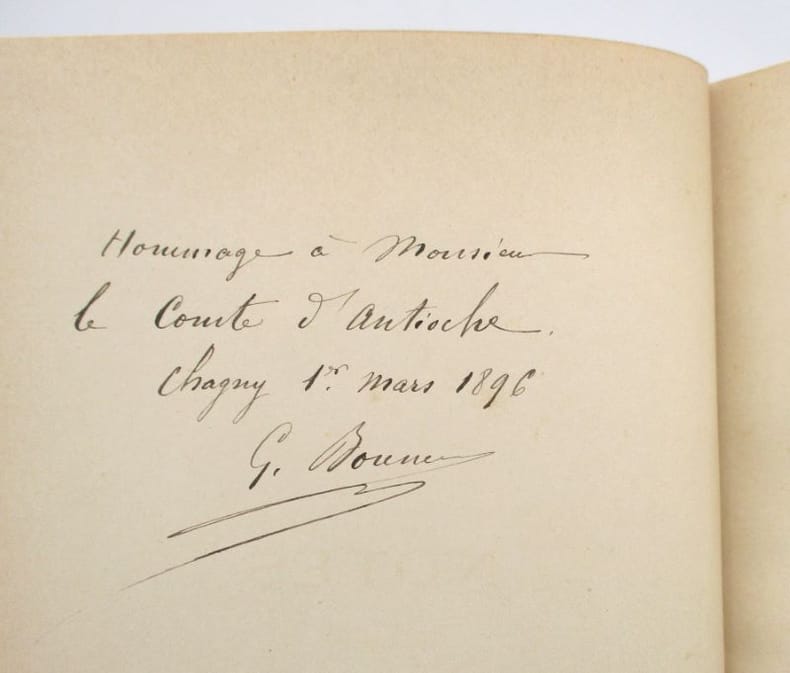 Hommage à Monsieur
le Comte d'Antioche.
Chagny 1er. mars 1896
G.